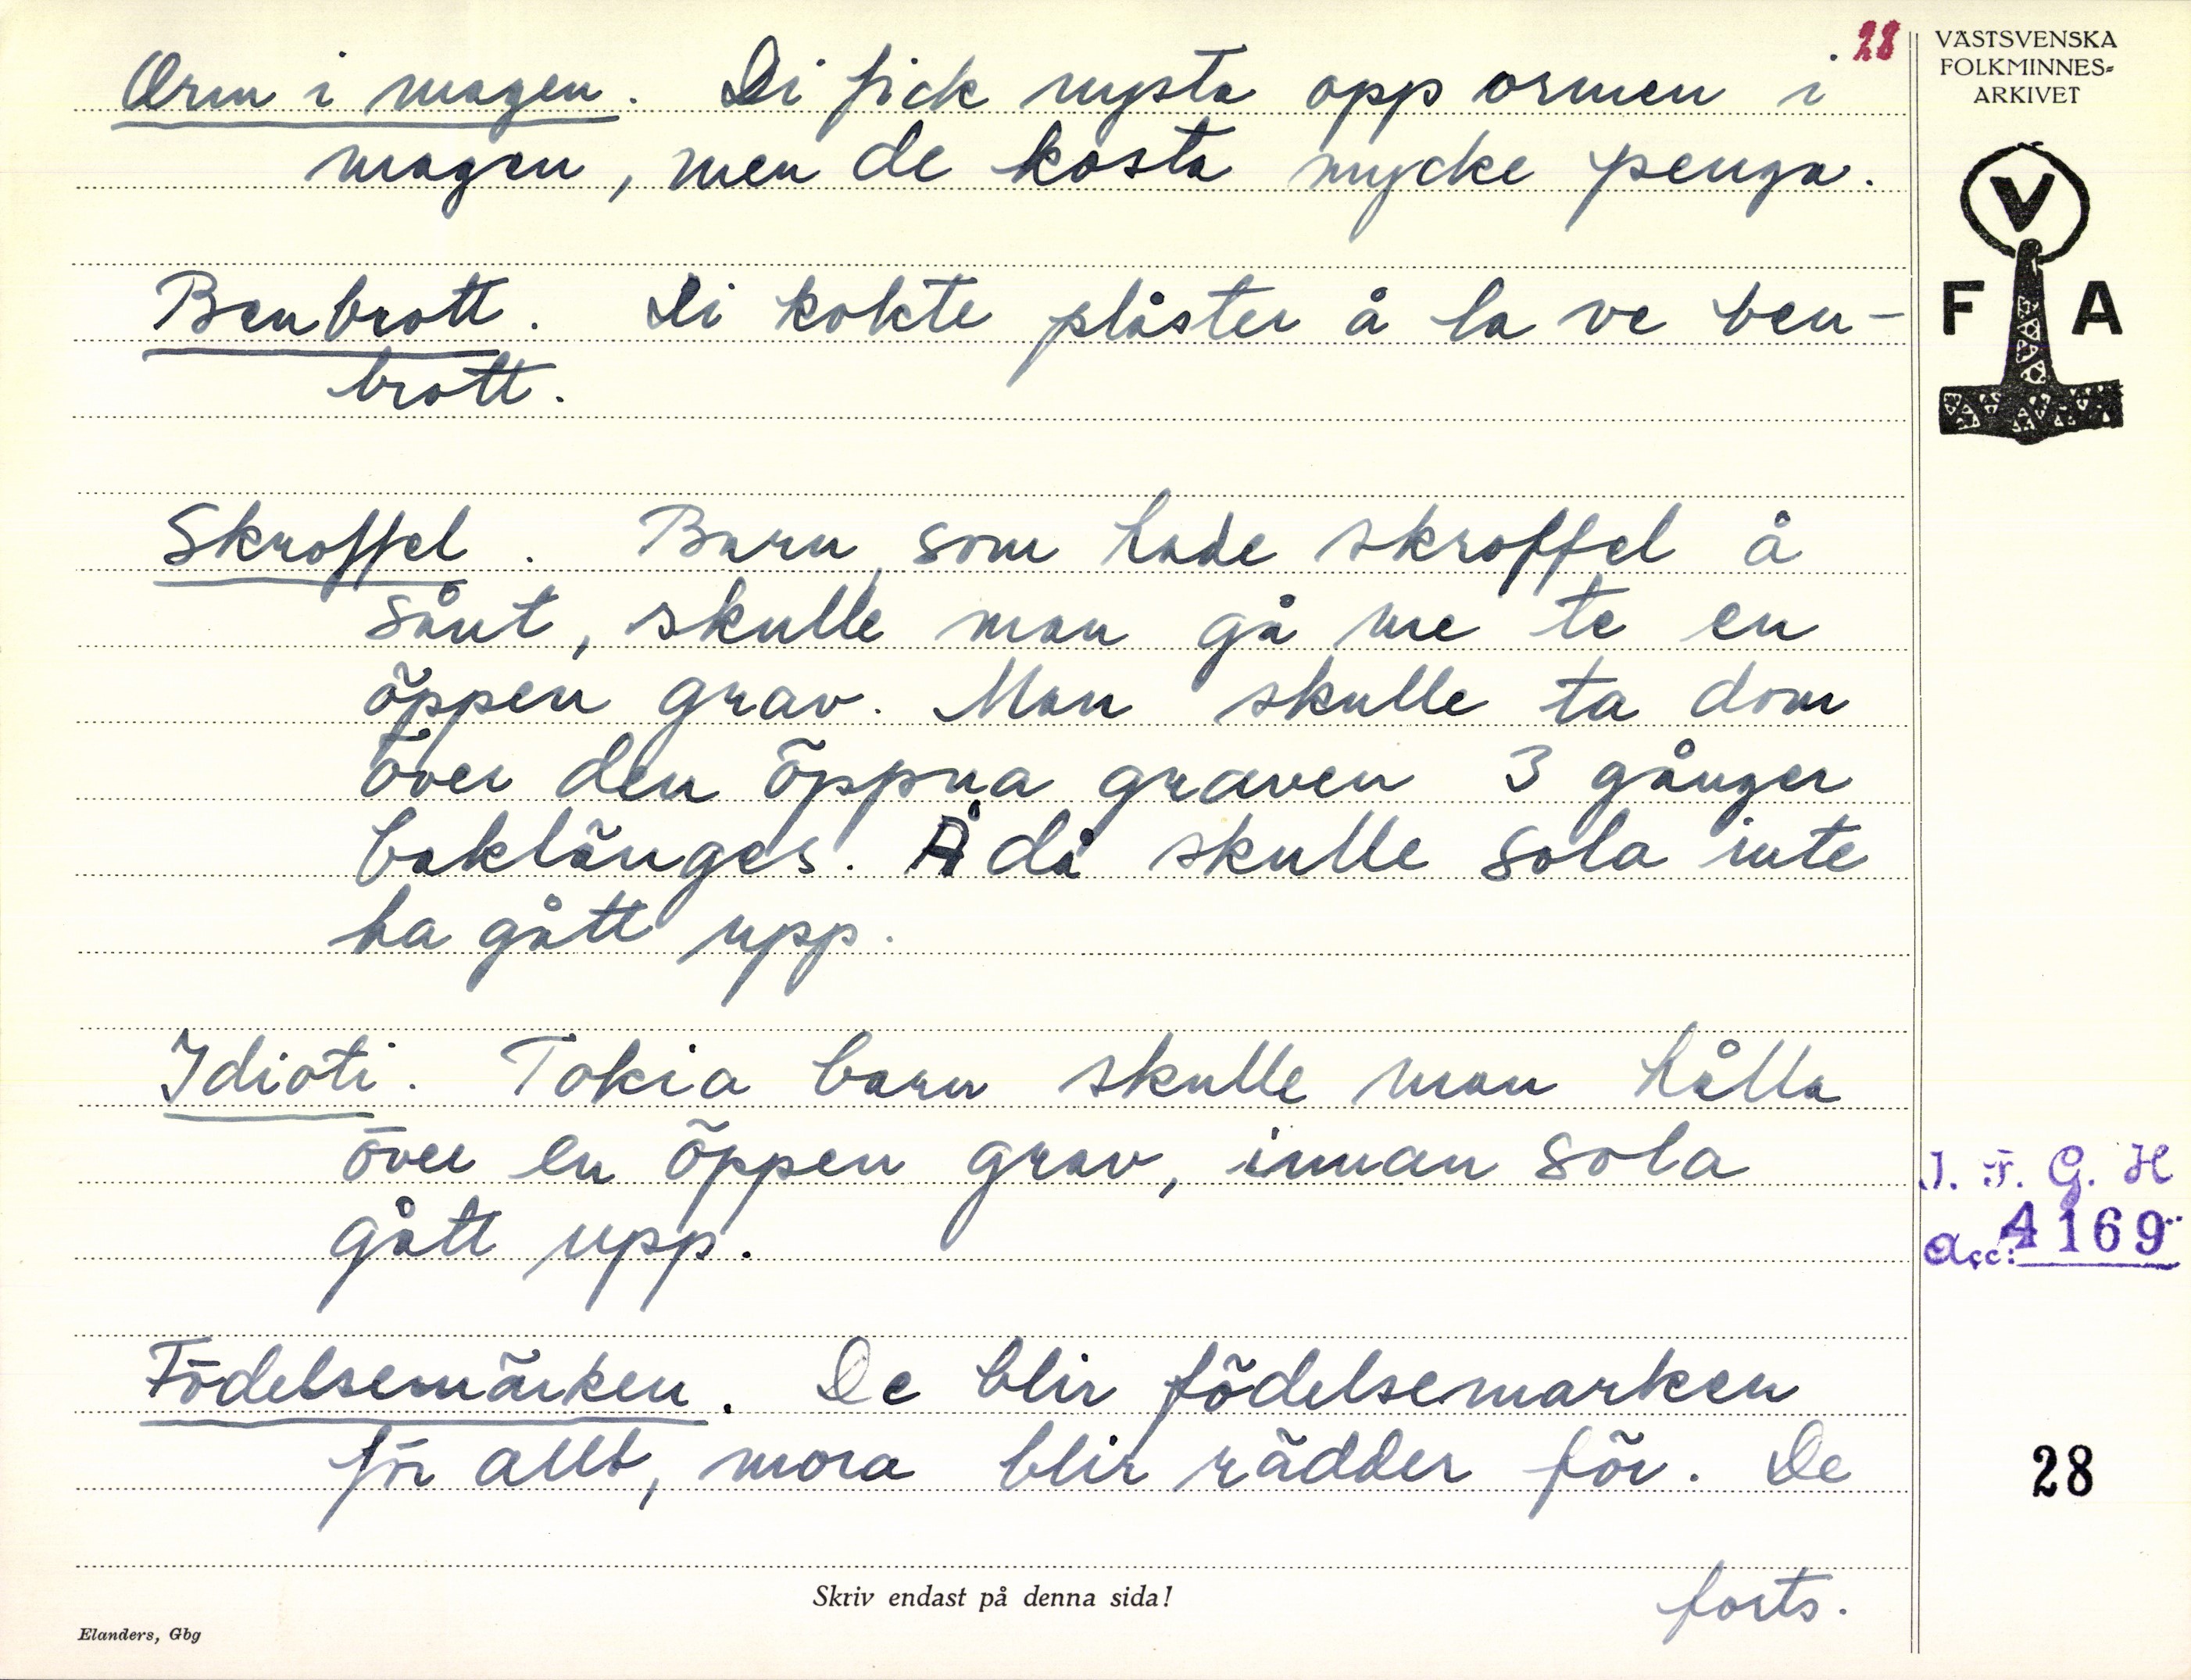 28
VÄSTSVENSKA
FOLKMINNES-
ARKIVET
V
F A
Orm i magen. Di fick mysta opp ormen i
magen, men de kosta mycke penga.
Benbrott. Di kokte plåster å la ve ben-
brott.
Skroffel. Barn, som hade skroffel å
sånt, skulle man gå me te en
öppen grav. Man skulle ta dom
över den öppna graven 3 gånger
baklänges. Å då skulle sola inte
ha gått upp.
Idioti. Tokia barn skulle man hålla
över en öppen grav, innan sola
gått upp.
Födelsemärken. De blir födelsemarken
för allt, mora blir rädder för. De
forts.
I. F. G. H
Acc: 4169
28
Skriv endast på denna sida!
Elanders, Gbg